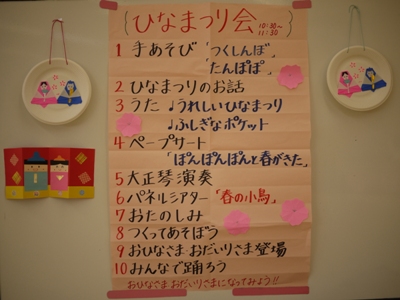 ひなまつり会 10:30~
11:30
1 手あそび「つくしんぼ」
「たんぽぽ」
2 ひなまつりのお話
3 うた ♩うれしいひなまつり
♩ふしぎなポケット
4 ペープサート
「ぽんぽんぽんと春がきた」
5 大正琴演奏
6 パネルシアター「春の小鳥」
7 おたのしみ
8 つくってあそぼう
9 おひなさま・おだいりさま登場
10 みんなで踊ろう
おひなさま おだいりさまになってみよう!!